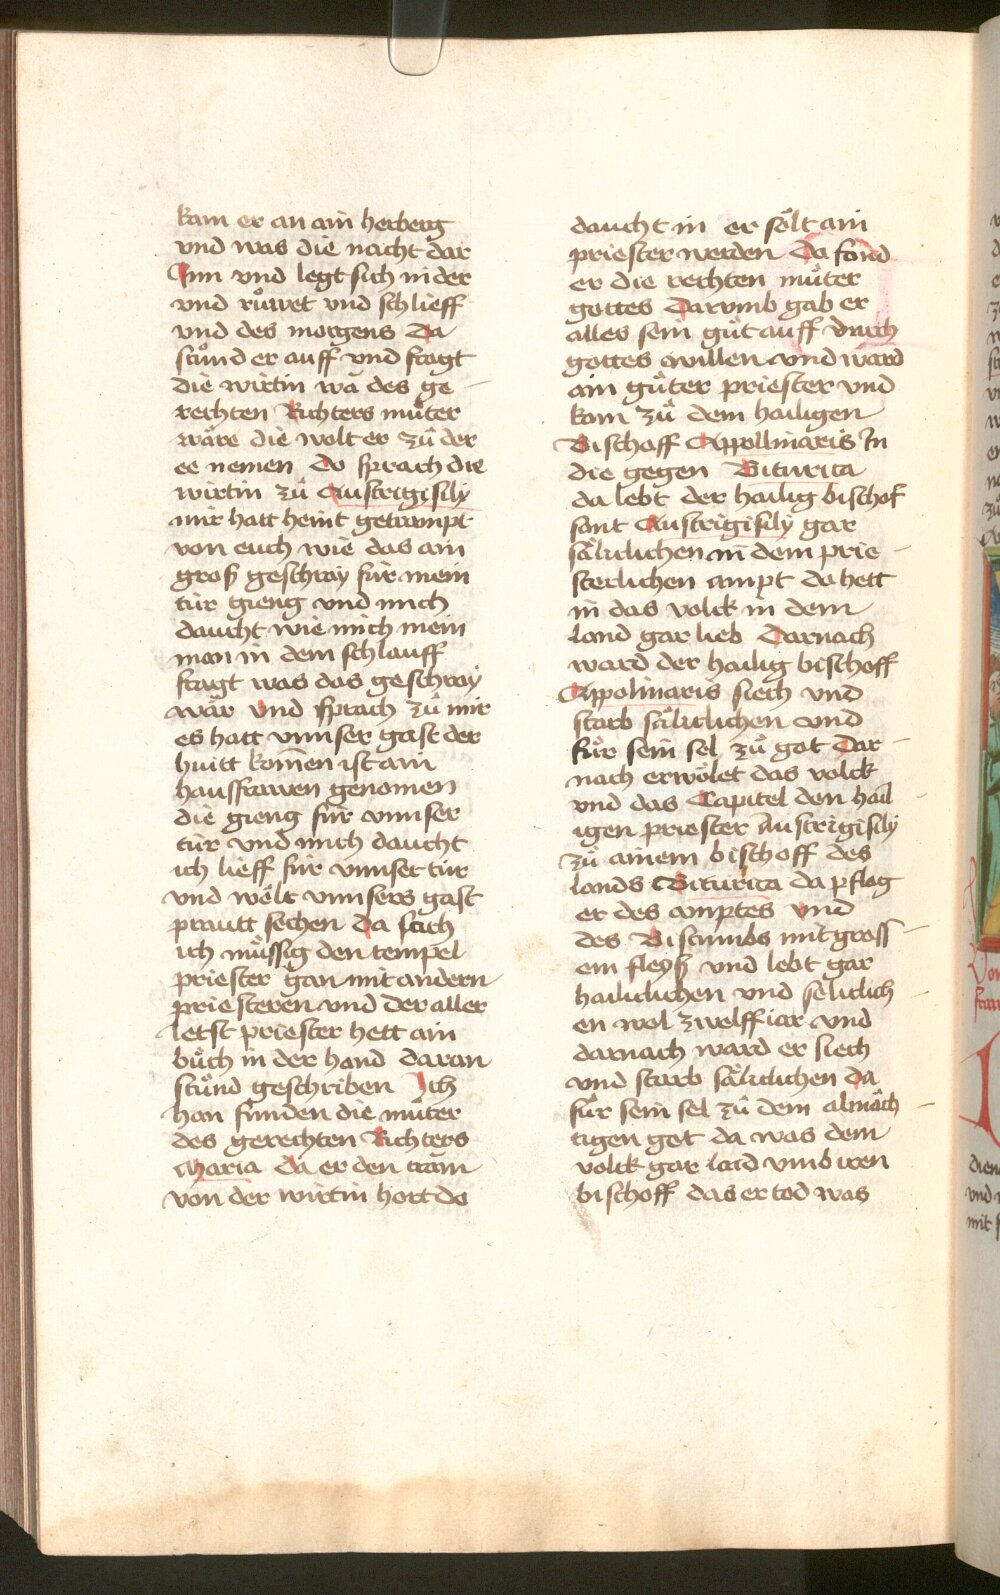 kam er an ain herberg
vnd was die nacht dar
Inn vnd legt sich nider
vnd růwet vnd schlieff
vnd des morgens Da
stůnd er auff vnd fragt
die wirtin wa des ge
rechten Richters můter
wäre die wolt er zů der
ee nemen Do sprach die
wirtin zů Austrigisily
mir hatt heint getrompt
von euch wie das ain
groß geschray für mein
tür gieng vnd mich
daucht wie mich mein
man in dem schlauff
fragt was das geschray
wär vnd sprach zů mir
es hatt vnnser gast der
huitt komen ist ain
haussfrawen genomen
die gieng für vnnser
tür vnd mich daucht
ich lieff für vnnser tür
vnd wölt vnnsers gast
prautt sechen da sach
ich můssig den tempel
priester gan mit andern
priesteren vnd der aller
letst priester hett ain
bůch in der hand daran
stůnd geschriben Ich
han funden die můter
des gerechten Richters
Maria Da er den tram
von der wirtin hort do
daucht in er sölt ain
priester werden Da fand
er die rechten můter
gottes Darvmb gab er
alles sein gůt auff durch
gottes willen vnd ward
ain gůter priester vnd
kam zů dem hailigen
Bischoff Appollinaris In
die gegen Biturica
da lebt der hailig bischof
sant Austrigisily gar
sälicklichen in dem prie
sterlichen ampt do hett
in das volck in dem
land gar lieb Darnach
ward der hailig bischoff
Appolinaris siech vnd
starb sälicklichen vnd
fůr sein sel zů got Dar
nach erwölet das volck
vnd das Capitel den hail
igen priester Austrigisily
zů ainem bischoff des
lands Biturica da pflag
er des amptes vnd
des Bistumbs mit gross
em fleyß vnd lebt gar
hailicklichen vnd selicklich
en wol zwelff iar vnd
darnach ward er siech
vnd starb sälicklichen da
fůr sein sel zů dem almäch
tigen got da was dem
volck gar laid vmb iren
bischoff das er tod was